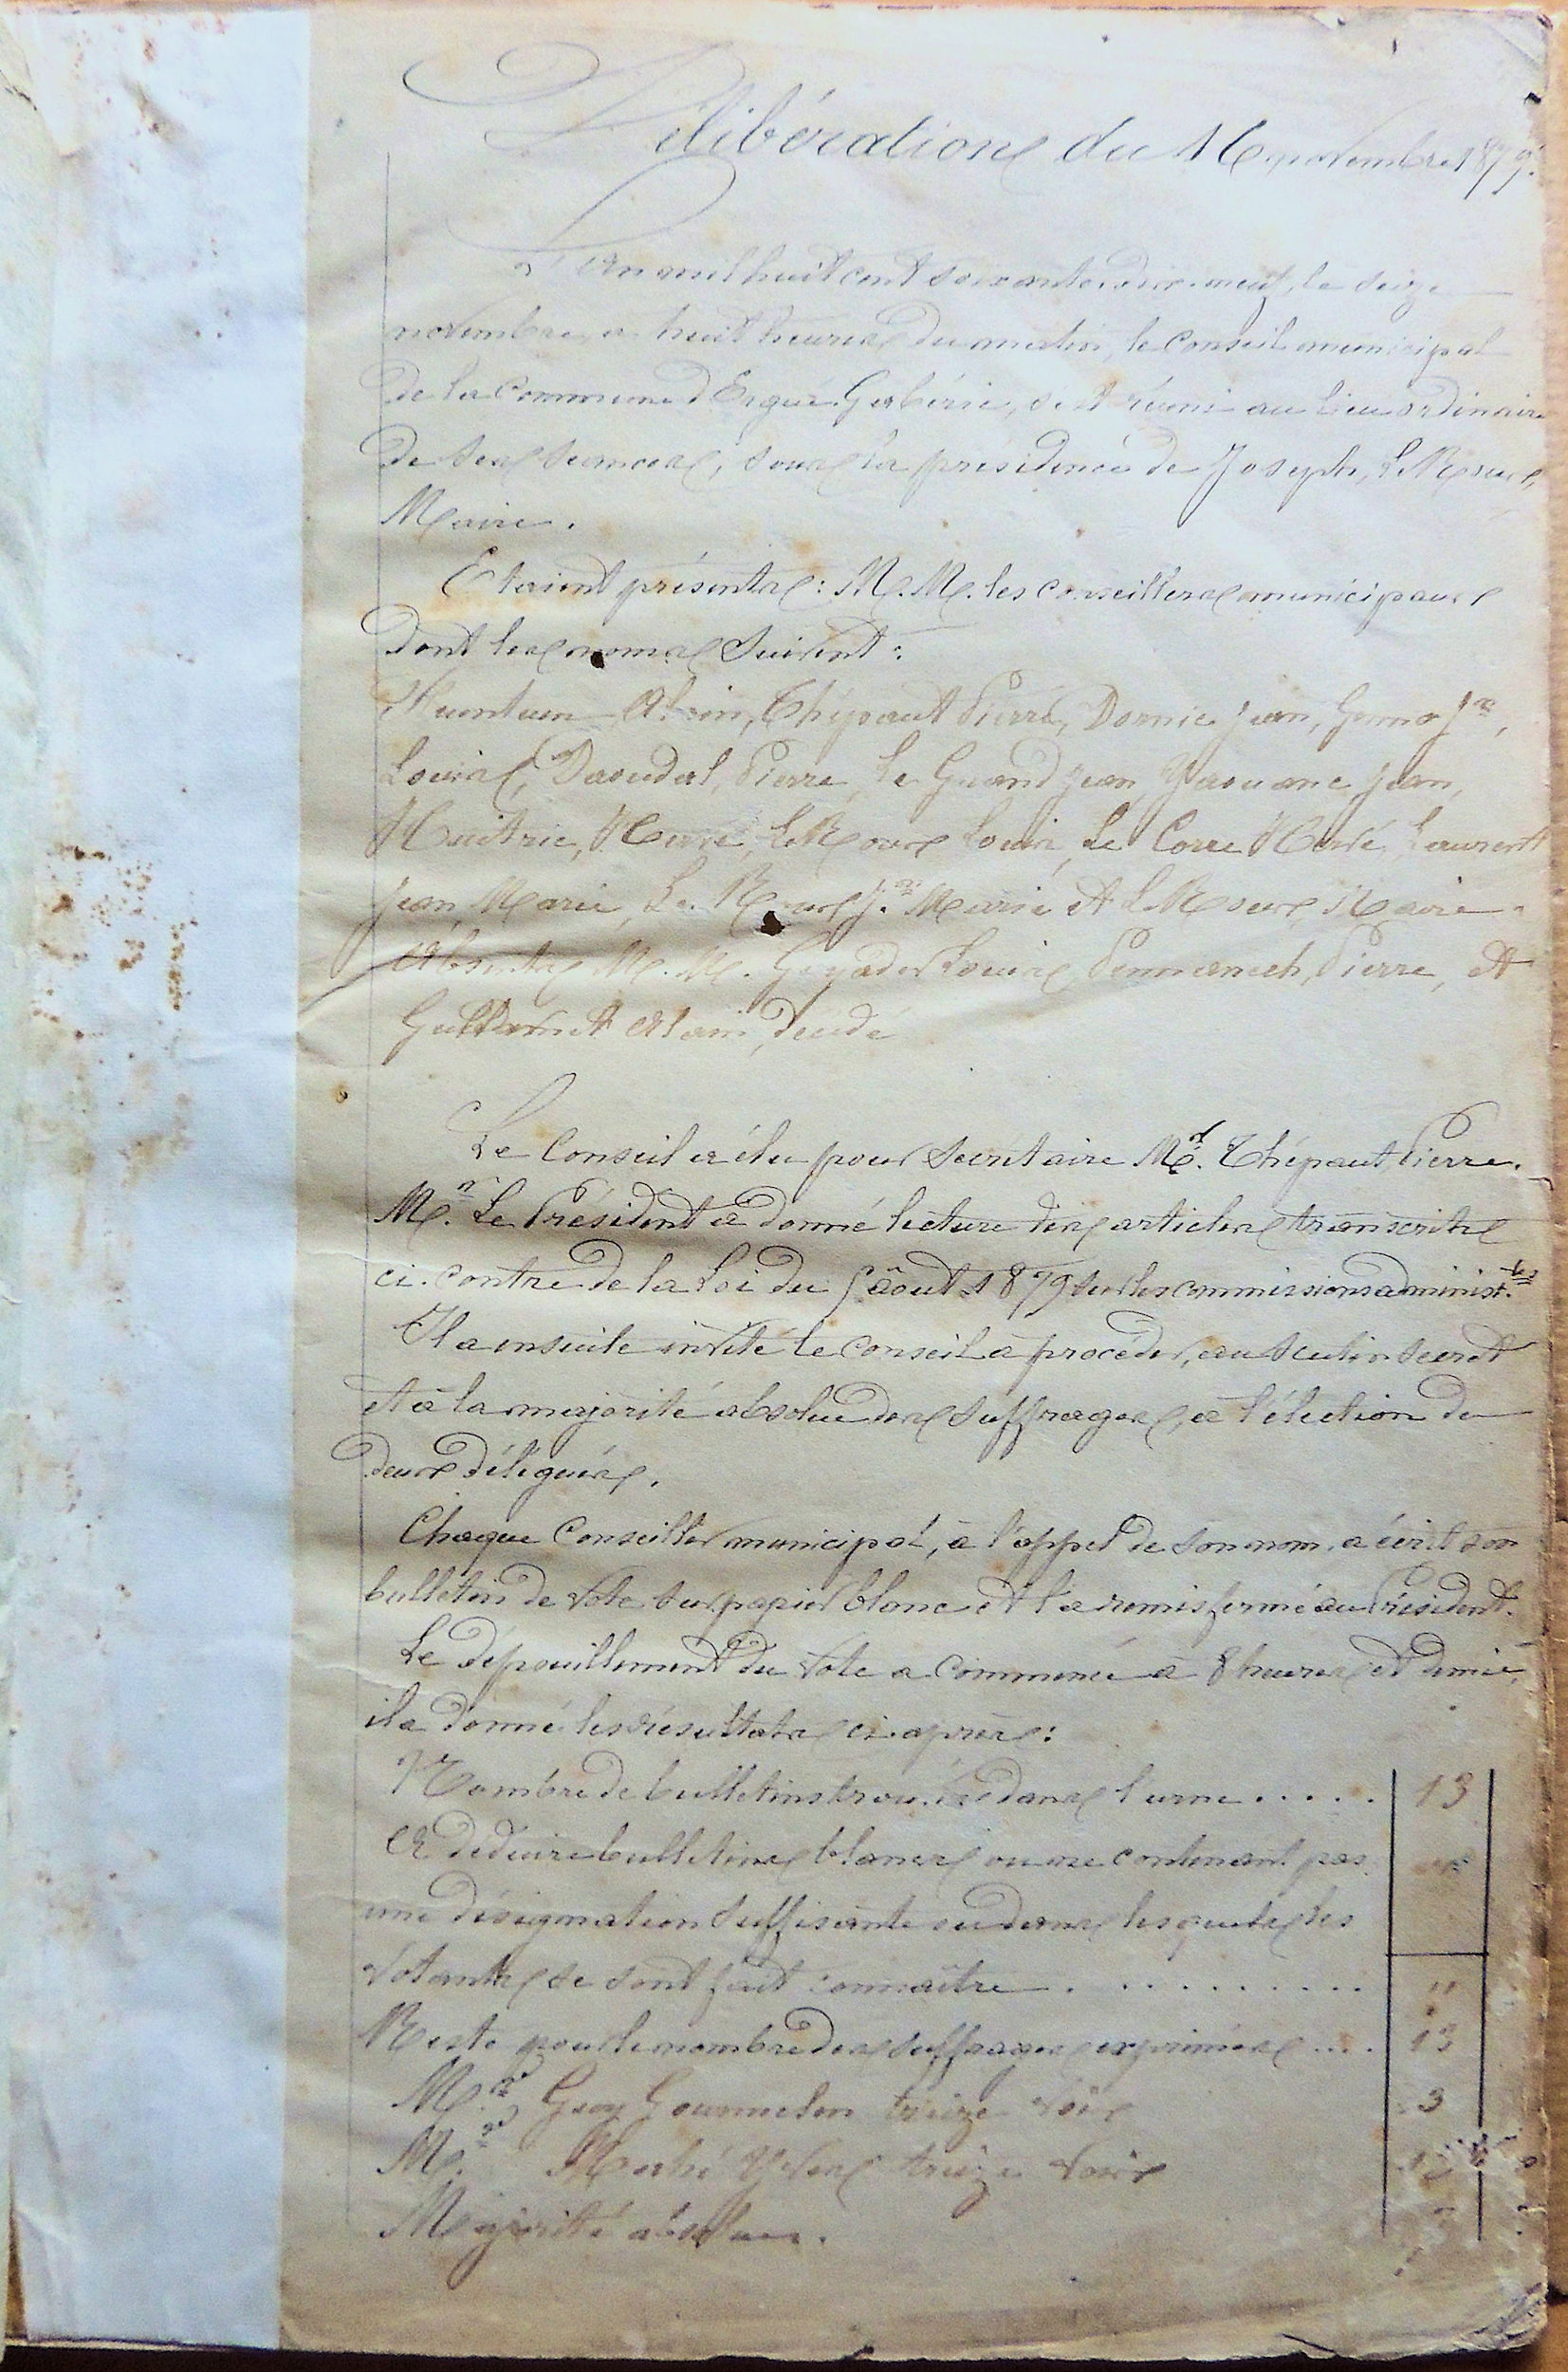 Délibérations du 16 novembre 1879.
L'An mil huit cent soixante-dix-neuf, le seize
novembre, à huit heures du matin, le conseil municipal
de la Commune d'Ergué-Gabéric, s'est réuni au lieu ordinaire
de ses séances, sous la présidence de Joseph, Le Roux,
Maire.
Etaient présents : M.M. les conseillers municipaux
dont les noms suivent :
Alain, Thépaut Pierre, Dornic Jean, Jn,
Louis, Daoudal Pierre, Le Grand Jean, Yaouanc Jean,
Huitric, Hervé, Le Roux Louis, Le Corre Hervé, Laurent
Jean Marie, Le Roux Jn Marie et Le Roux, Maire.
Absents M.M. Goyader Louis, Pennanech, Pierre, et
Alain, décédé
Le Conseil a élu pour secrétaire Mr. Thépaut, Pierre.
Mr. Le Président a donné lecture des articles transcrits
ci-contre de la Loi du 5 août 1879 sur les commissions administ.ves
Il a ensuite invité le Conseil à procéder, au scrutin secret
et à la majorité absolue des suffrages, à l'élection de
deux délégués.
Chaque Conseiller municipal, à l'appel de son nom, a écrit son
bulletin de vote sur papier blanc et l'a remis fermé au Président.
Le dépouillement du vote a commencé à 8 heures et demie,
il a donné les résultats ci-après :
Nombre de bulletins trouvés dans l'urne ..... 13
A déduire bulletins blancs ou ne contenant pas
une désignation suffisante ou dans lesquels les
votants se sont fait connaître .......... "
Reste pour le nombre des suffrages exprimés .... 13
Mr. Guy Gourmelen treize voix
Mr. Mahé Yves treize voix
Majorité absolue.